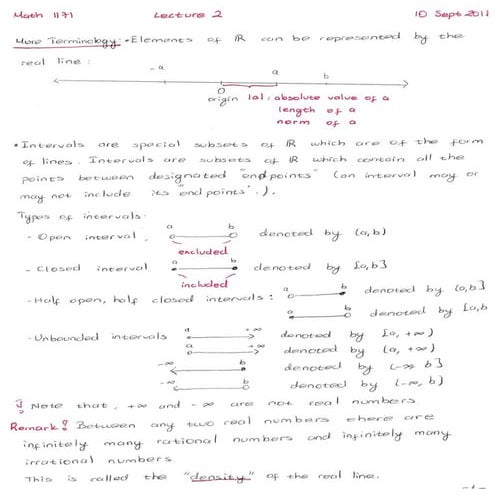 Math 1171 Lecture 2 10 Sept 2011
More Terminology: • Elements of ℝ can be represented by the
real line:
-a a b
0
origin |a|: absolute value of a
length of a
norm of a
• Intervals are special subsets of ℝ which are of the form
of lines. Intervals are subsets of ℝ which contain all the
points between designated "endpoints" (an interval may or
may not include its "endpoints".).
Types of intervals:
- Open interval. a b denoted by (a,b)
excluded
- Closed interval a b denoted by [a,b]
included
- Half open, half closed intervals: a b denoted by (a,b]
a b denoted by [a,b
- Unbounded intervals a +∞ denoted by [a, +∞)
a +∞ denoted by (a, +∞)
-∞ b denoted by (-∞ b]
-∞ b denoted by (-∞, b)
! Note that, +∞ and -∞ are not real numbers
Remark! Between any two real numbers there are
infinitely many rational numbers and infinitely many
irrational numbers
This is called the "density" of the real line.
-1-